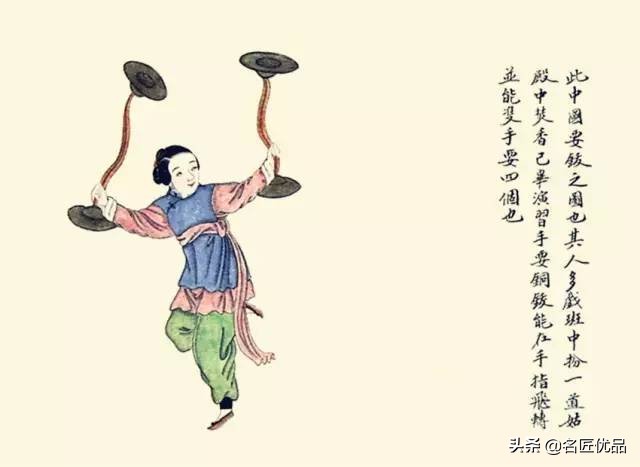 此中國耍鈸之圖也其人多戲班中扮一道姑
殿中焚香已畢演習手耍銅鈸能在手指飛轉
並能雙手耍四個也
头条 @名匠优品